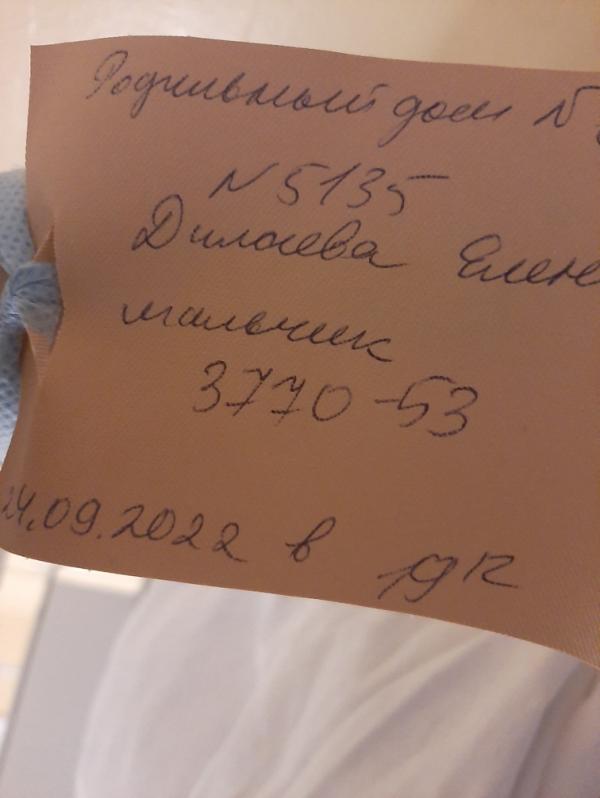 Родильный дом N
N 5135
Дилоева Елен
мальчик
3770-53
24.09.2022 в 19 12